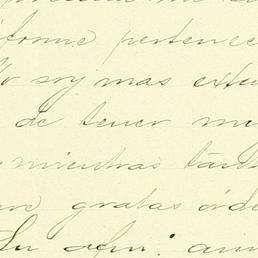 forme pertenece
Yo soy mas exten
de tener mu
mientras tant
gratas órde
Su afmo. ami